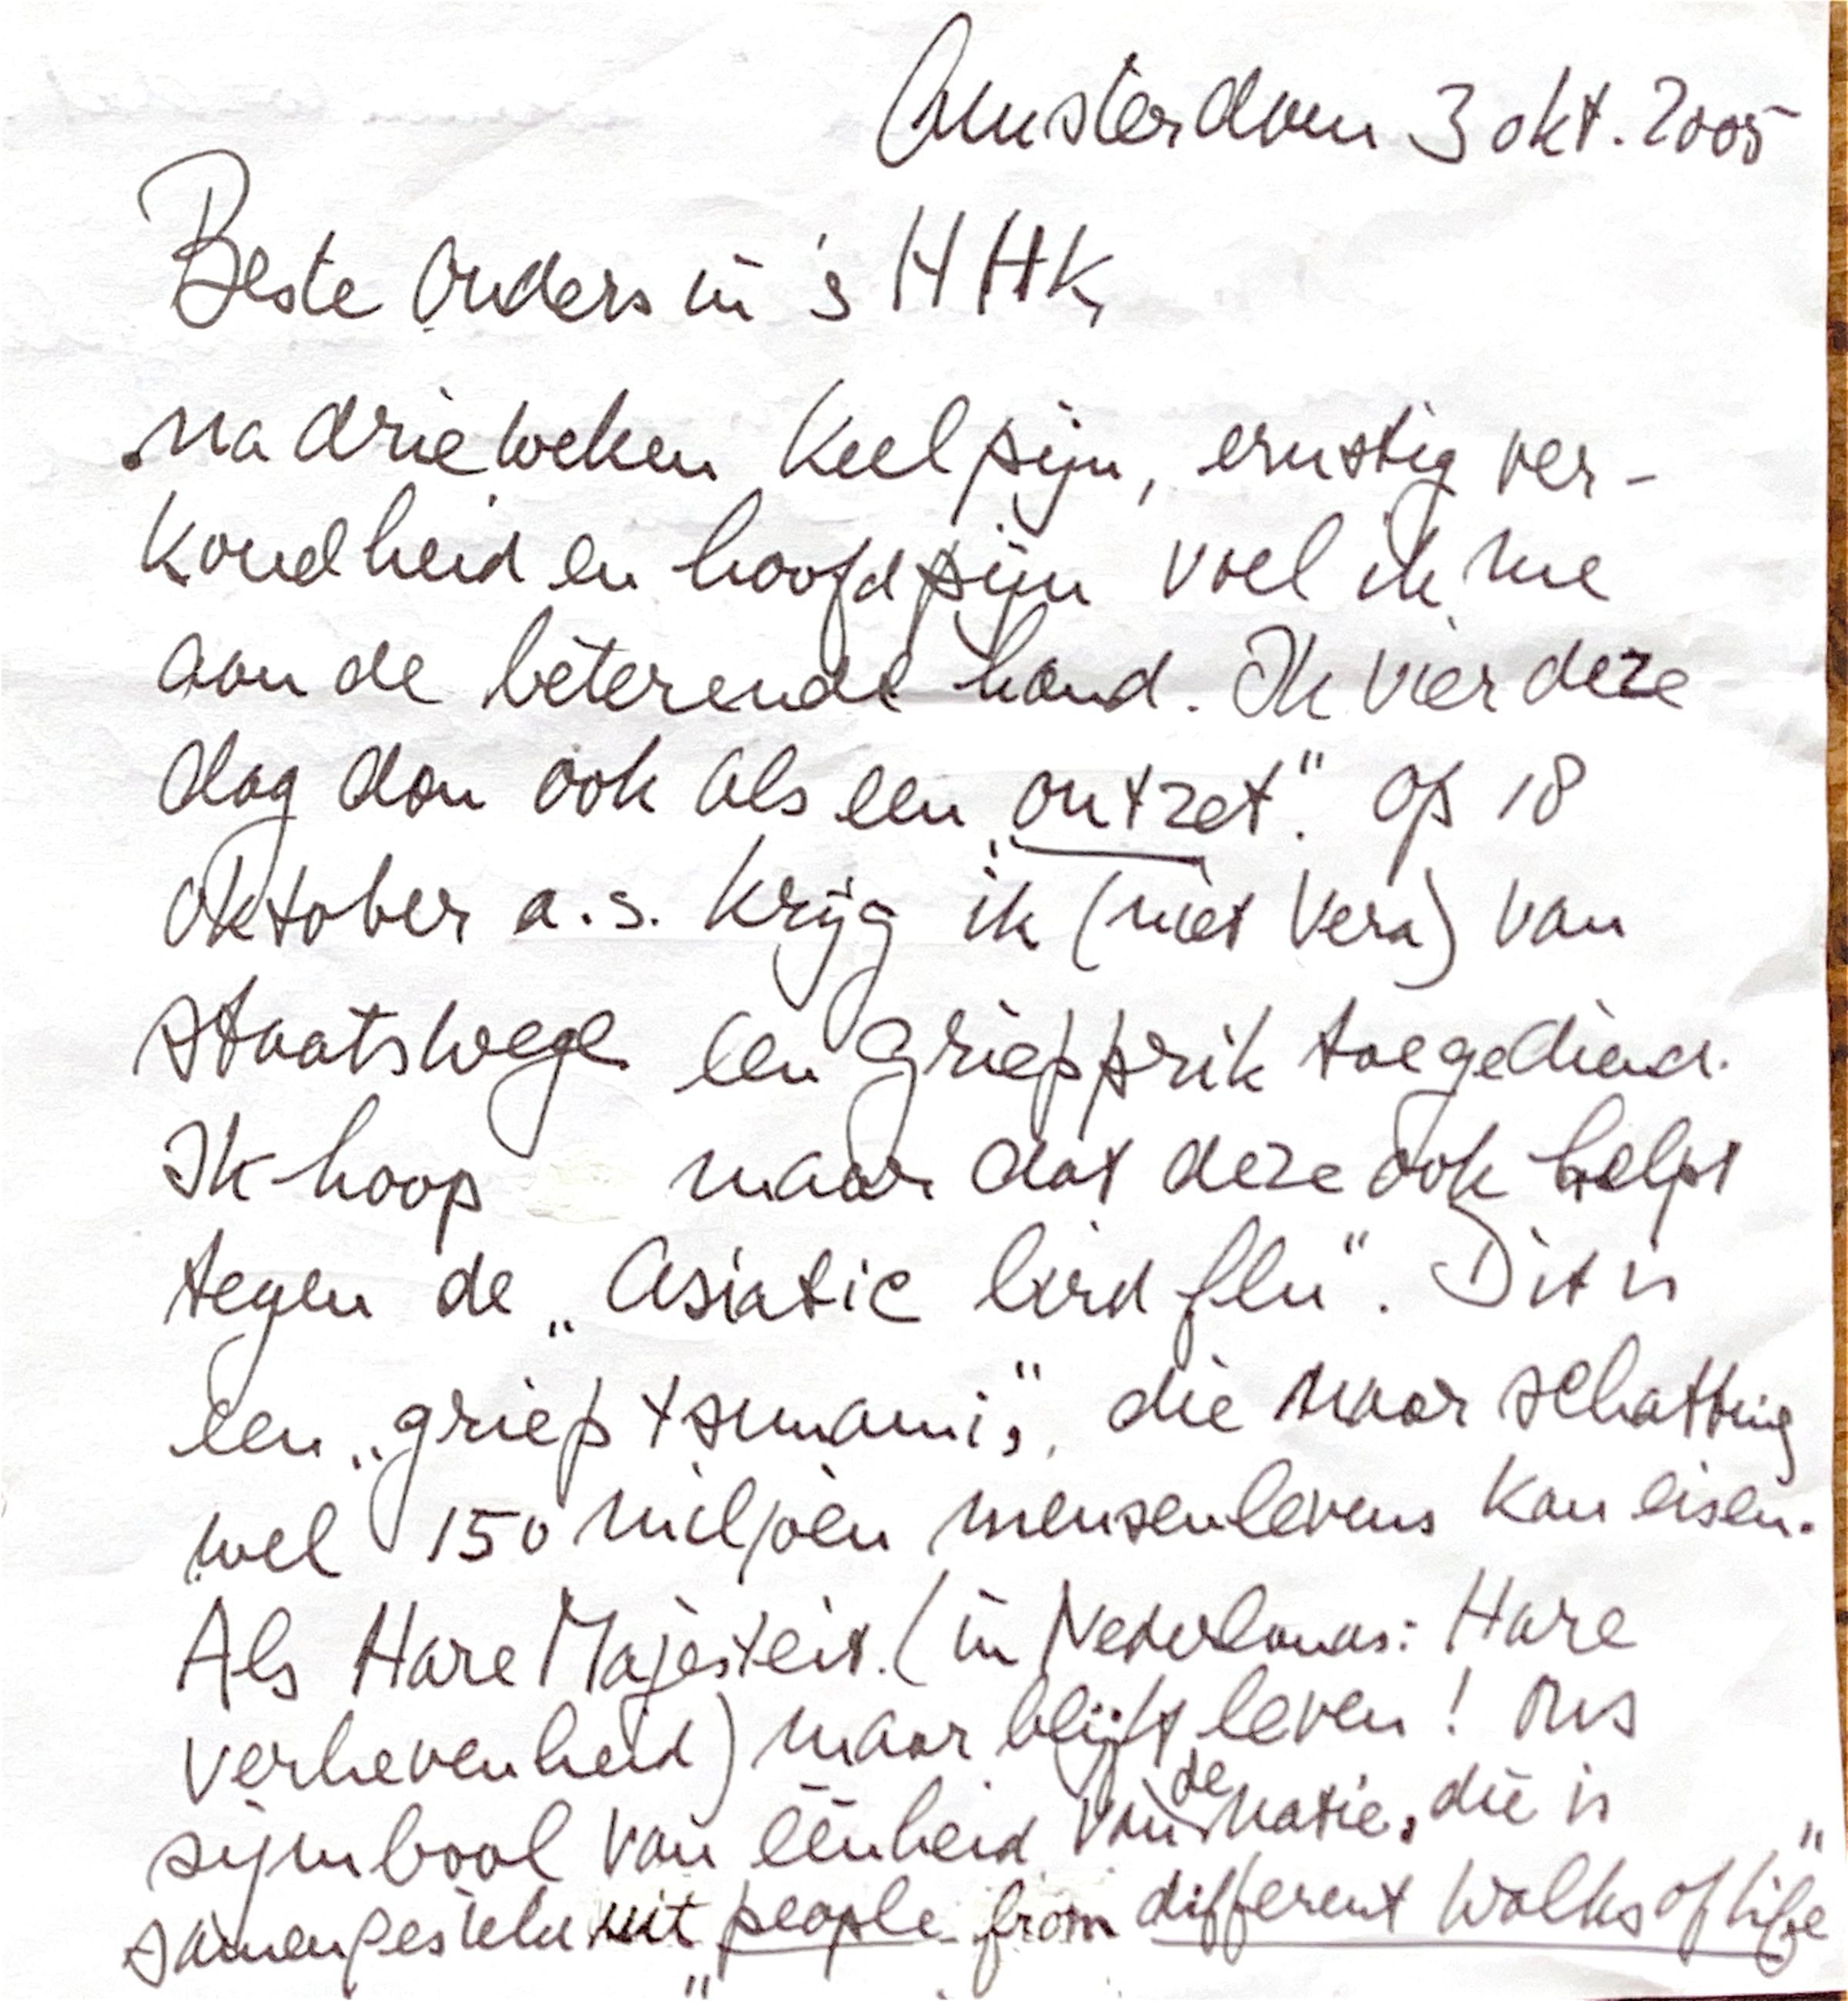 Amsterdam 3 okt. 2005
Beste Ouders in 's HHK,
na drie weken keelpijn, ernstig ver-
koudheid en hoofdpijn voel ik me
aan de beterende hand. Ik vier deze
dag dan ook als een „ontzet". Op 18
oktober a.s. krijg ik (niet Vera) van
staatswege een griepprik toegediend.
Ik hoop maar dat deze ook helpt
tegen de „Asiatic bird flu". Dit is
een „grieptsunami", die naar schatting
wel 150 miljoen mensenlevens kan eisen.
Als Hare Majesteit (in Nederlands: Hare
verhevenheid) maar blijft leven! Ons
symbool van éénheid van de natie, die is
samengesteld uit „people from different walks of life"